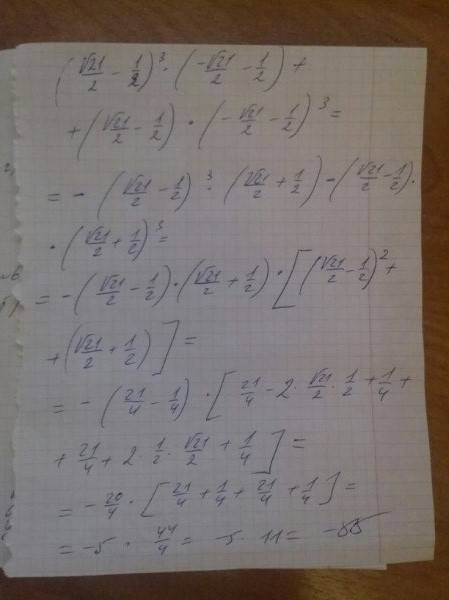 (√21/2 - 1/2)³ · (-√21/2 - 1/2) +
+ (√21/2 - 1/2) · (-√21/2 - 1/2)³ =
= - (√21/2 - 1/2)³ · (√21/2 + 1/2) - (√21/2 - 1/2) ·
· (√21/2 + 1/2)³ =
= - (√21/2 - 1/2) · (√21/2 + 1/2) · [(√21/2 - 1/2)² +
+ (√21/2 + 1/2)] =
= - (21/4 - 1/4) · [21/4 - 2 · √21/2 · 1/2 + 1/4 +
+ 21/4 + 2 · 1/2 · √21/2 + 1/4] =
= - 20/4 · [21/4 + 1/4 + 21/4 + 1/4] =
= -5 · 44/4 = -5 · 11 = -55